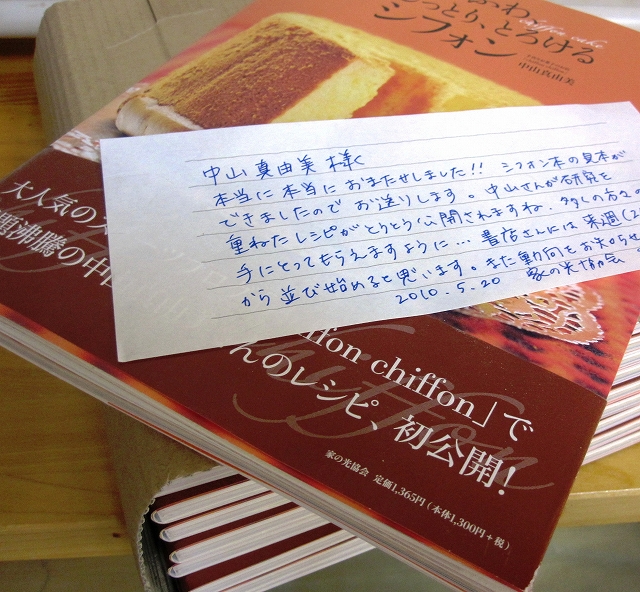 わ、
chiffon cake
っとり、とろける
シフォン
中山真由美
中山真由美様
本当に本当におまたせしました!! シフォン本の見本が
できましたのでお送りします。中山さんが研究を
重ねたレシピがとうとう公開されますね。多くの方々
手にとってもらえますように… 書店さんには来週
から並び始めると思います。また動向をお知らせ
2010.5.20 家の光協会
大人気の
題沸騰の中
ffon chiffon」で
んのレシピ、初公開!
家の光協会 定価1,365円(本体1,300円+税)